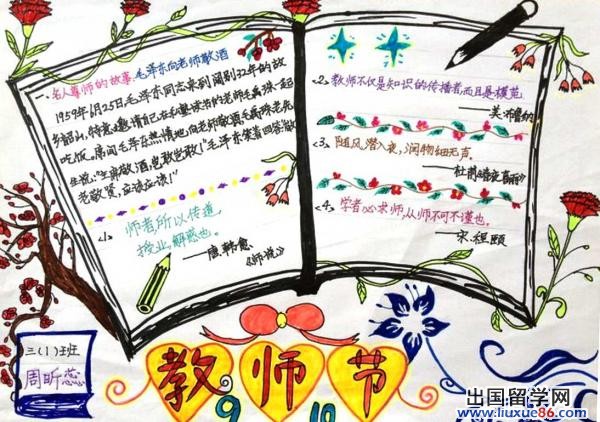 一、名人尊师的故事:毛泽东向老师敬酒
1959年6月25日毛泽东同志来到阔别32年的故
乡韶山,特意邀请自己在私塾读书的老师毛禹珠一起
吃饭。席间毛泽东热情地向老师敬酒,毛禹珠老先
生说:"主席敬酒,岂敢岂敢!"毛泽东笑着回答:"敬
老敬贤,应该应该!"
<1> 师者,所以传道,
授业,解惑也。
——唐.韩愈
《师说》
<2>、教师不仅是知识的传播者,而且是模范
——美.布鲁纳
<3>、随风潜入夜,润物细无声。
——杜甫《春夜喜雨》
<4>、学者必求师,从师不可不谨也。
——宋.程颐
三(1)班
周昕蕊
教师节
9 10
出国留学网
www.liuxue86.com